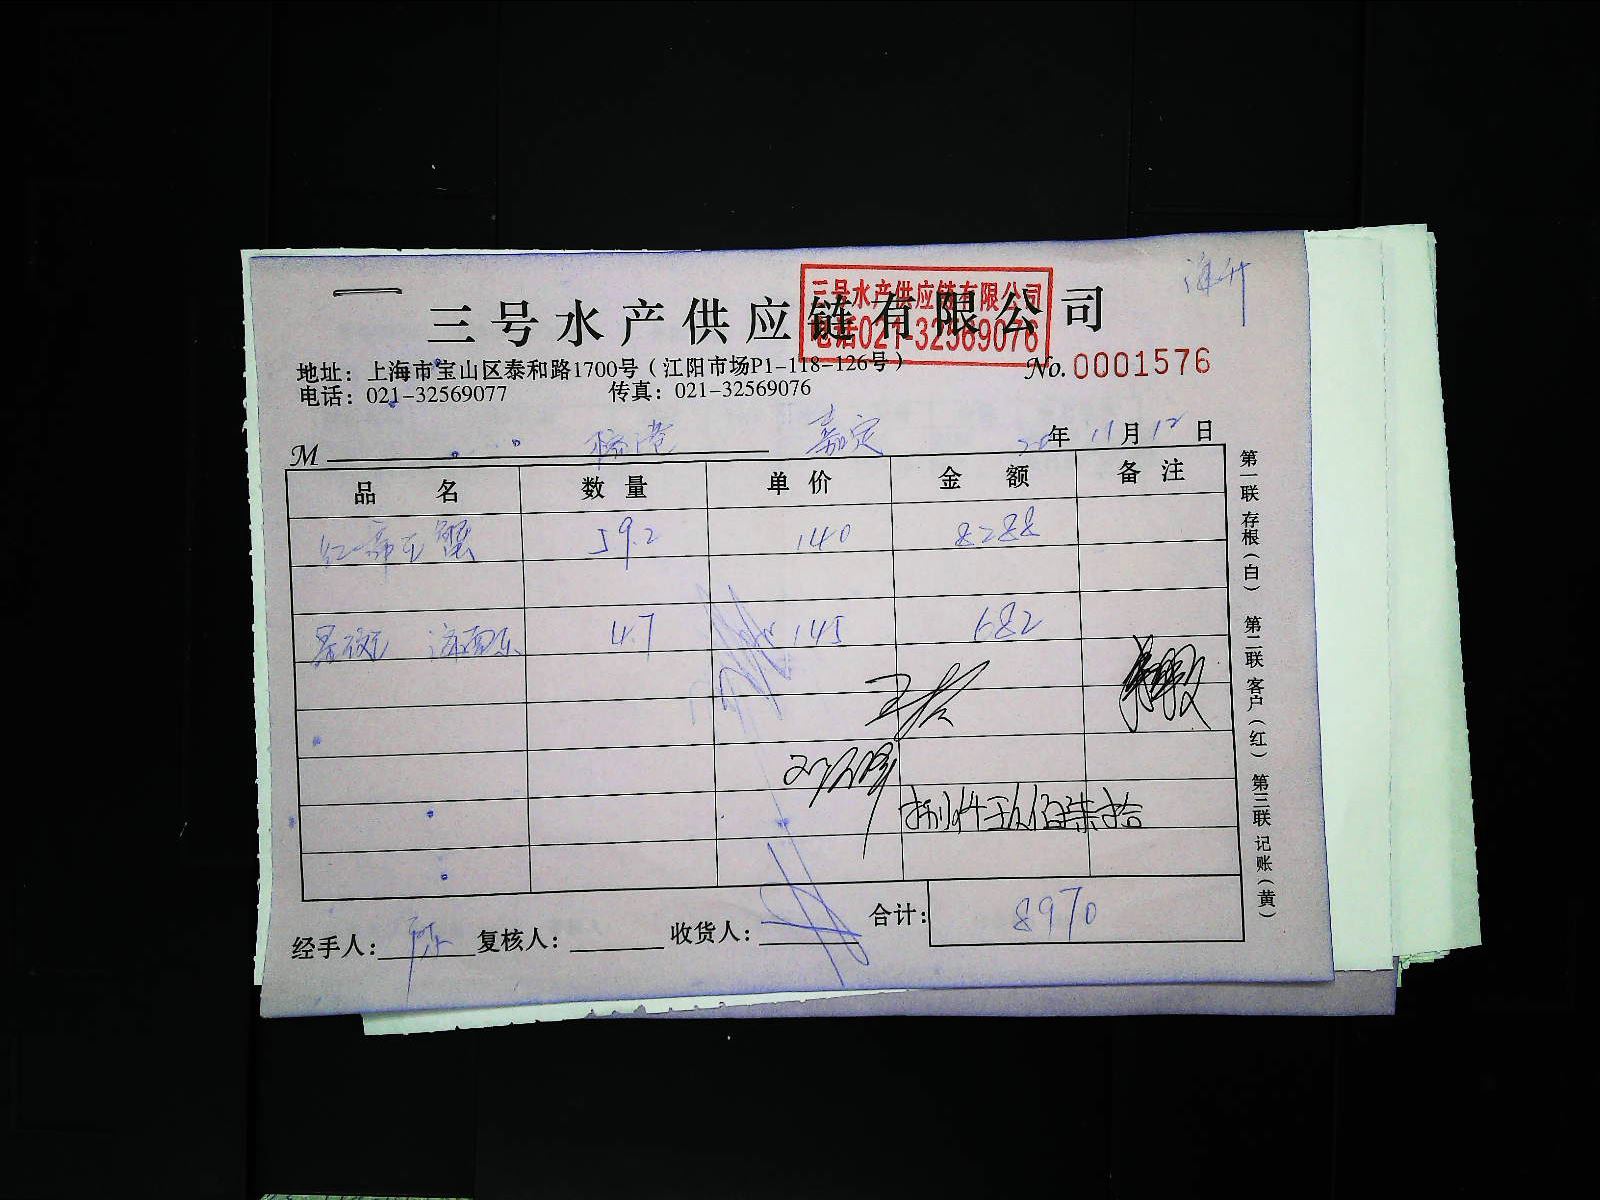 三号水产供应链有限公司
三号水产供应链有限公司
电话021-32569076
地址：上海市宝山区泰和路1700号（江阳市场P1-118-126号）
No.0001576
电话：021-32569077 传真：021-32569076
M 嘉定 20年11月12日
品名 数量 单价 金额 备注
红帝王蟹 59.2 140 8288
4.7 145 682
捌仟玖佰柒拾
合计：8970
经手人：陈 复核人： 收货人：
第一联 存根（白） 第二联 客户（红） 第三联 记账（黄）